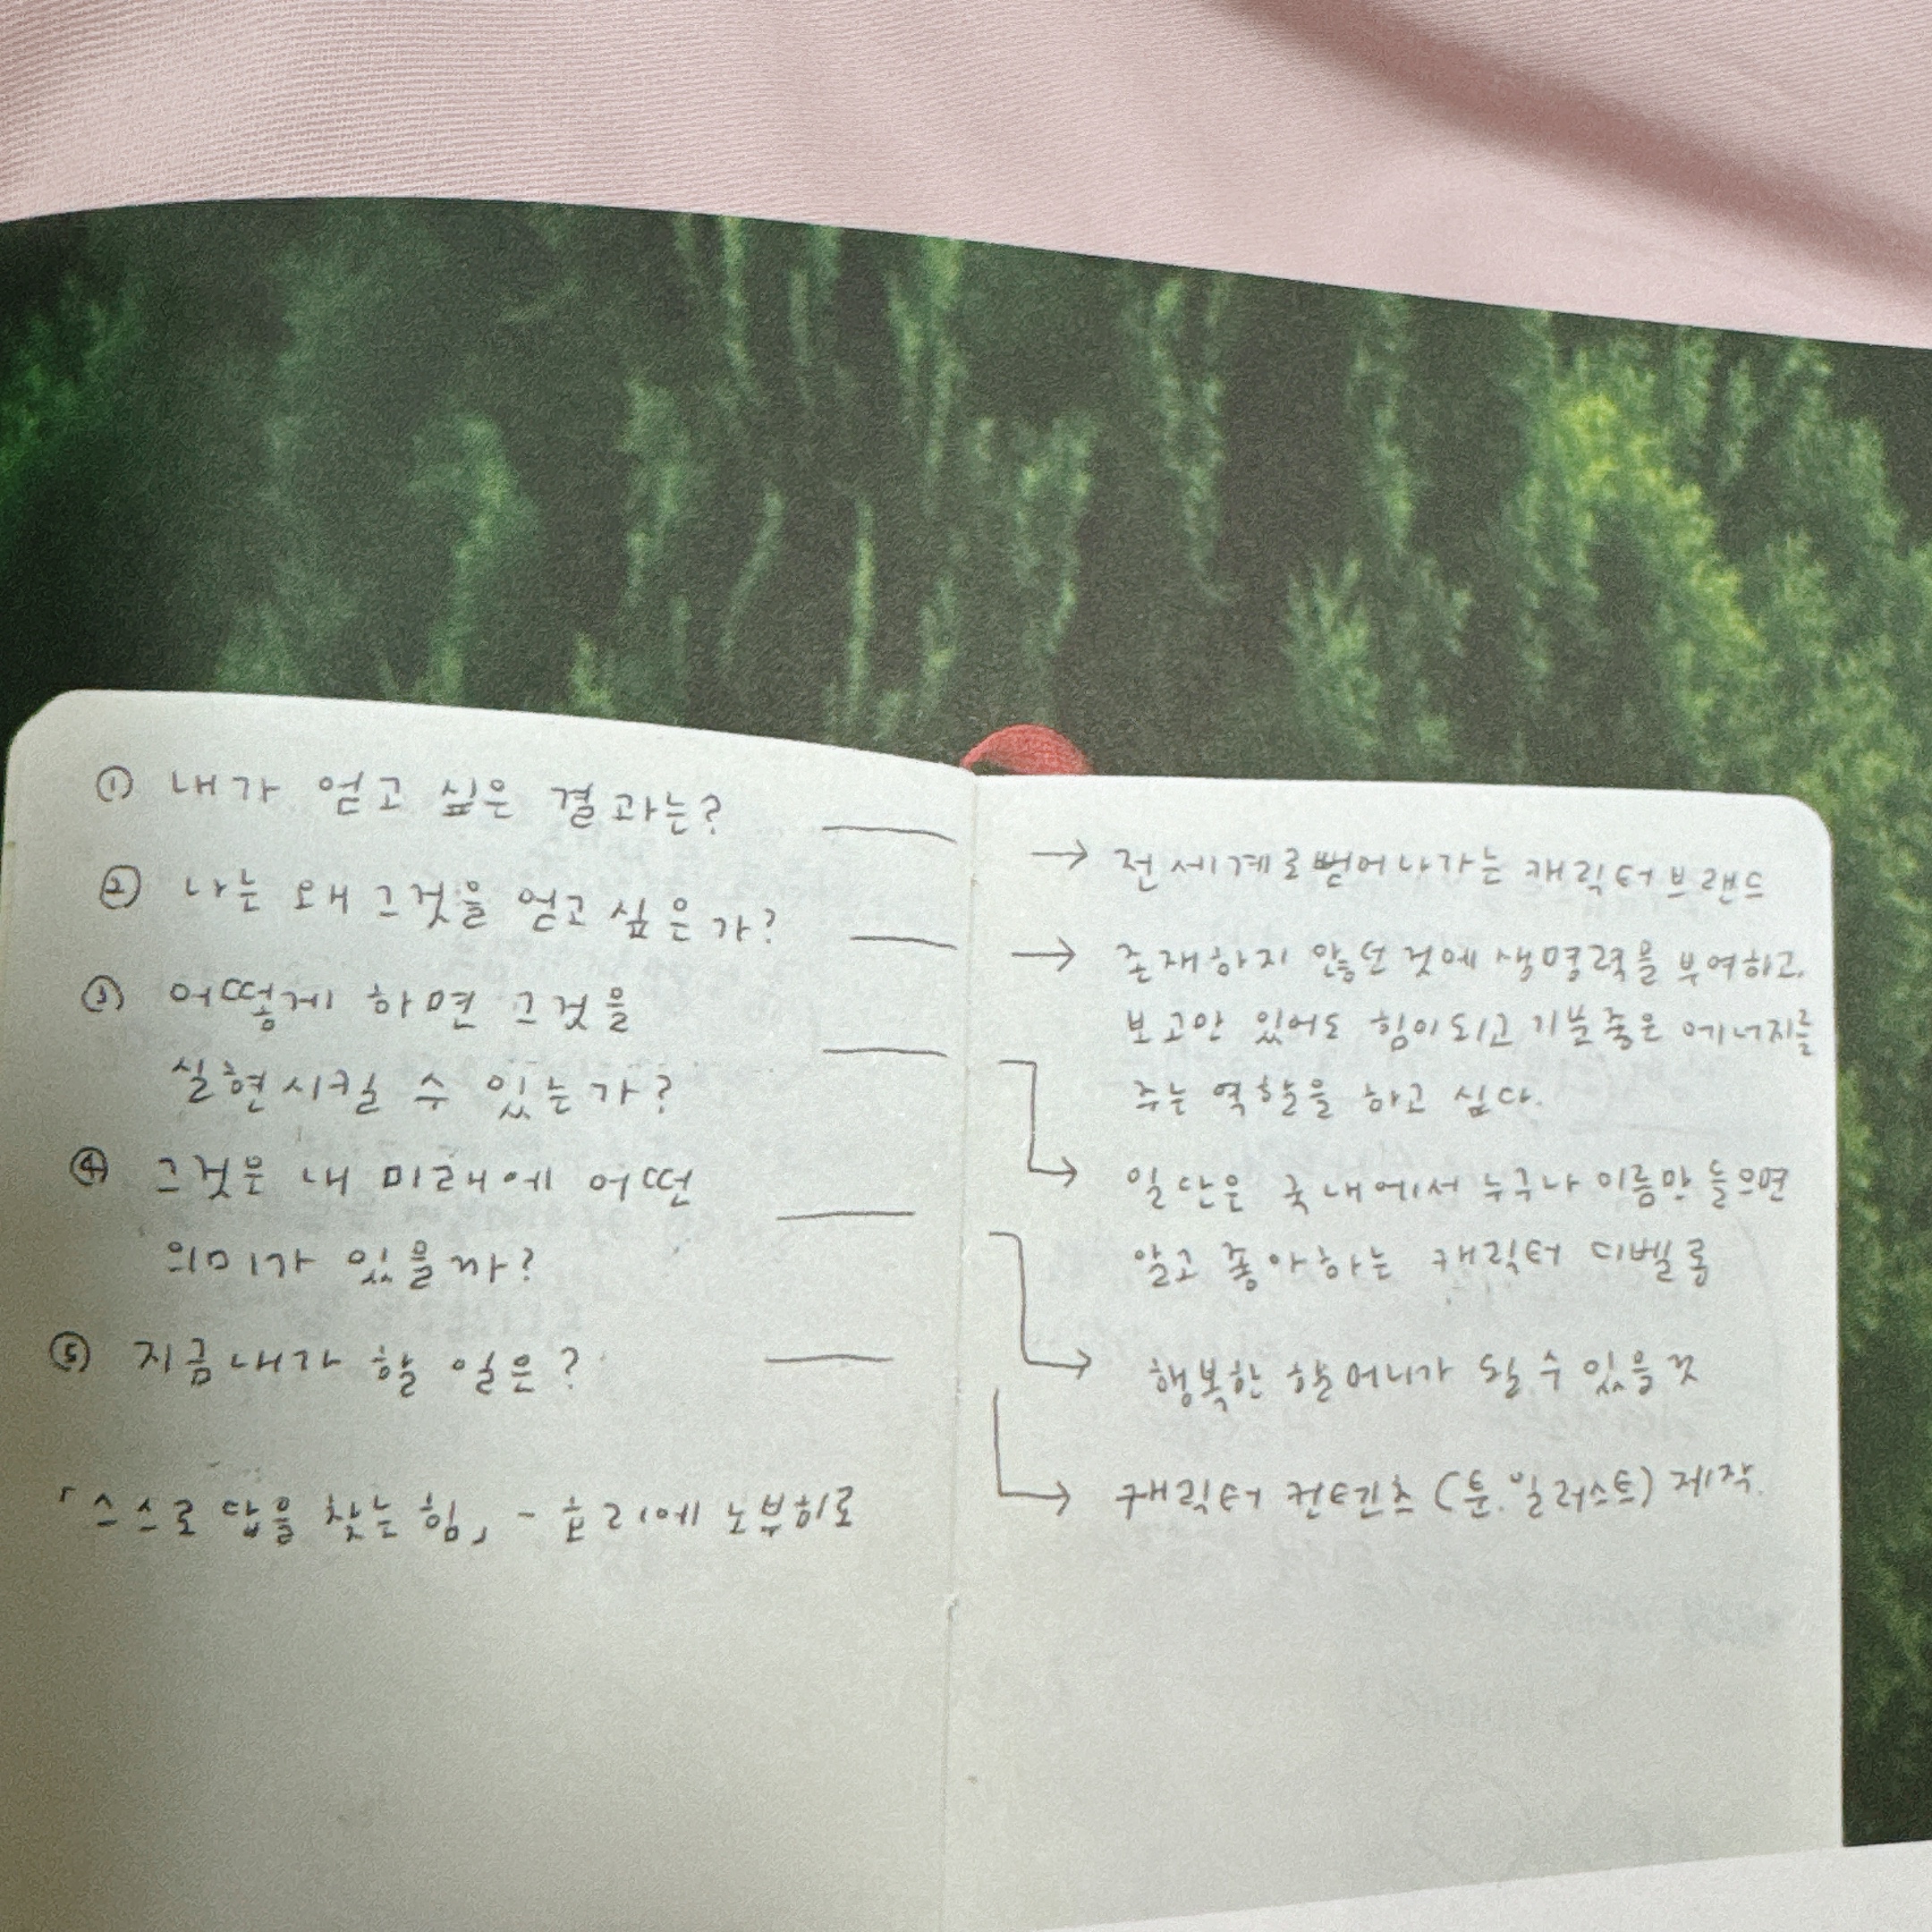 ① 내가 얻고 싶은 결과는?
② 나는 왜 그것을 얻고 싶은가?
③ 어떻게 하면 그것을
실현시킬 수 있는가?
④ 그것은 내 미래에 어떤
의미가 있을까?
⑤ 지금 내가 할 일은?
「스스로 답을 찾는 힘」 - 호리에 노부히로
→ 전 세계로 뻗어나가는 캐릭터 브랜드
→ 존재하지 않는던 것에 생명력을 부여하고,
보고만 있어도 힘이 되고 기분 좋은 에너지를
주는 역할을 하고 싶다.
→ 일단은 국내에서 누구나 이름만 들으면
알고 좋아하는 캐릭터 디벨롭
→ 행복한 할머니가 될 수 있을 것
→ 캐릭터 컨텐츠 (툰.일러스트) 제작.